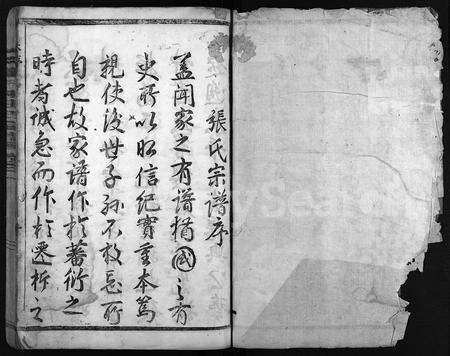 張氏宗譜序
盖聞家之有譜猶國之有
史所以昭信紀實重本篤
親使後世子孫不敢忘所
自也故家譜作於蕃衍之
時者誠急而作於遷析之